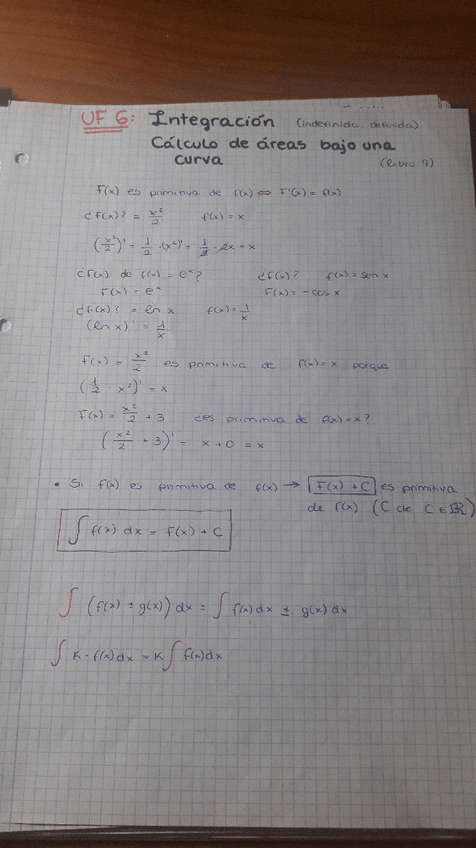 UF 6: Integración (indefinida, definida)
Cálculo de áreas bajo una
curva (libro 9)
F(x) es primitiva de f(x) ⇔ F'(x) = f(x)
¿F(x)? = x²/2 f(x) = x
(x²/2)' = 1/2 · (x²)' = 1/2 · 2x = x
¿F(x) de f(x) = eˣ? ¿F(x)? f(x) = sen x
F(x) = eˣ F(x) = - cos x
¿F(x)? = ln x f(x) = 1/x
(ln x)' = 1/x
F(x) = x²/2 es primitiva de f(x) = x porque
(1/2 · x²)' = x
F(x) = x²/2 + 3 ¿es primitiva de f(x) = x?
(x²/2 + 3)' = x + 0 = x
• Si F(x) es primitiva de f(x) → F(x) + C es primitiva
de f(x) (C cte C ∈ ℝ)
∫ f(x) dx = F(x) + C
∫ (f(x) ± g(x)) dx = ∫ f(x) dx ± g(x) dx
∫ K · f(x) dx = K ∫ f(x) dx